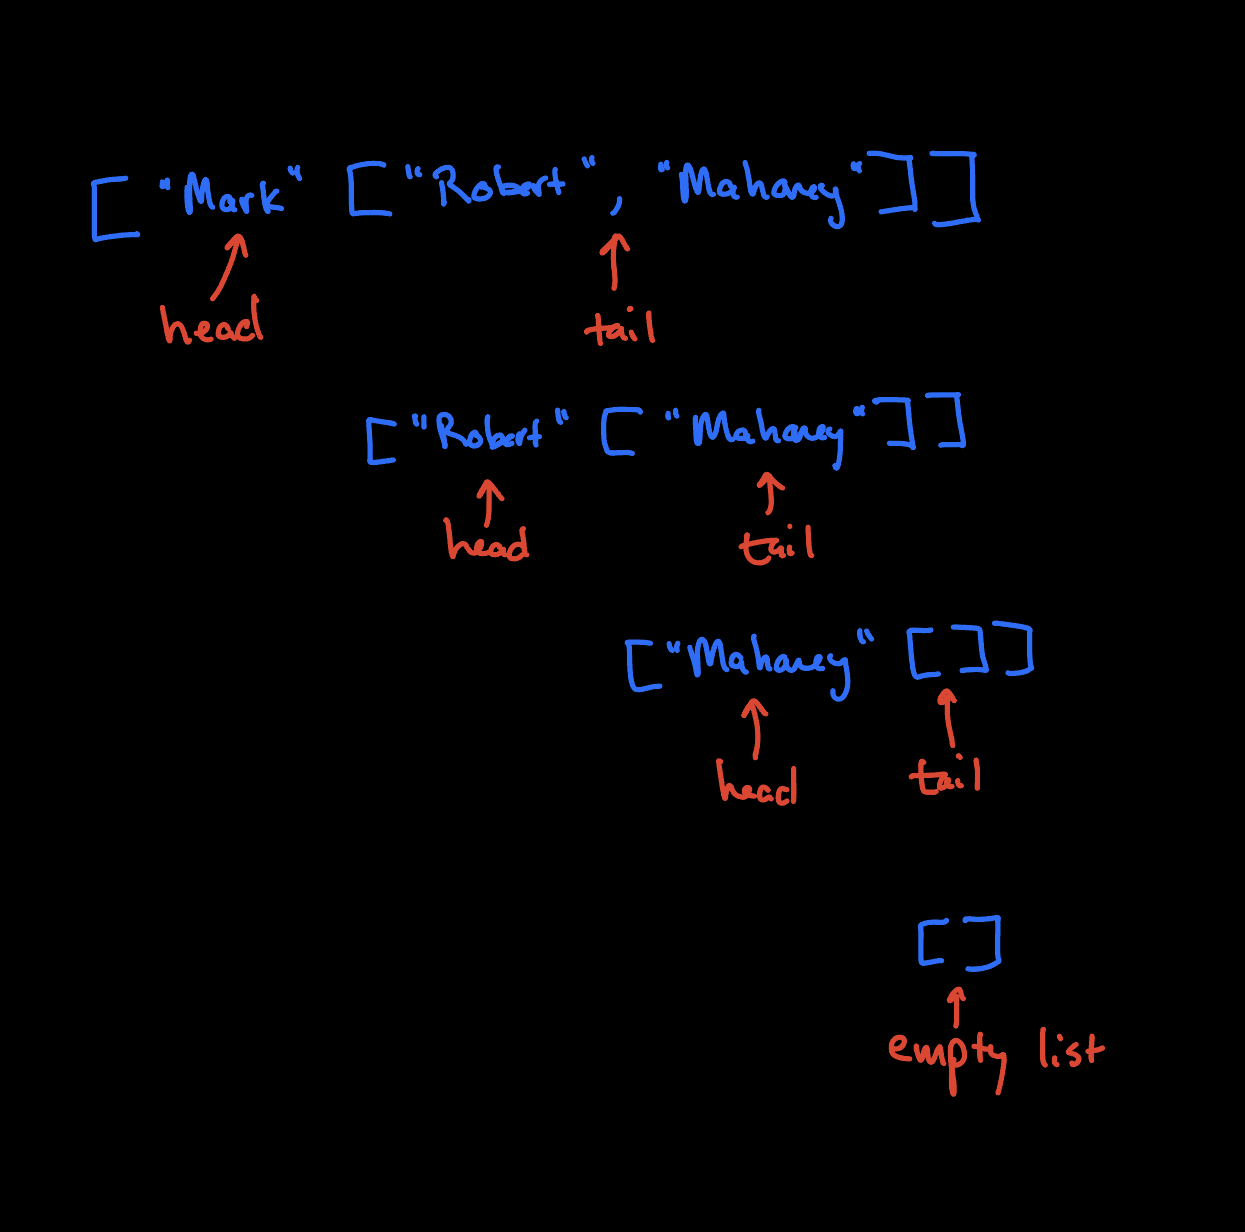 [ "Mark" [ "Robert", "Mahaney" ] ]
head tail
[ "Robert" [ "Mahaney" ] ]
head tail
[ "Mahaney" [ ] ]
head tail
[ ]
empty list